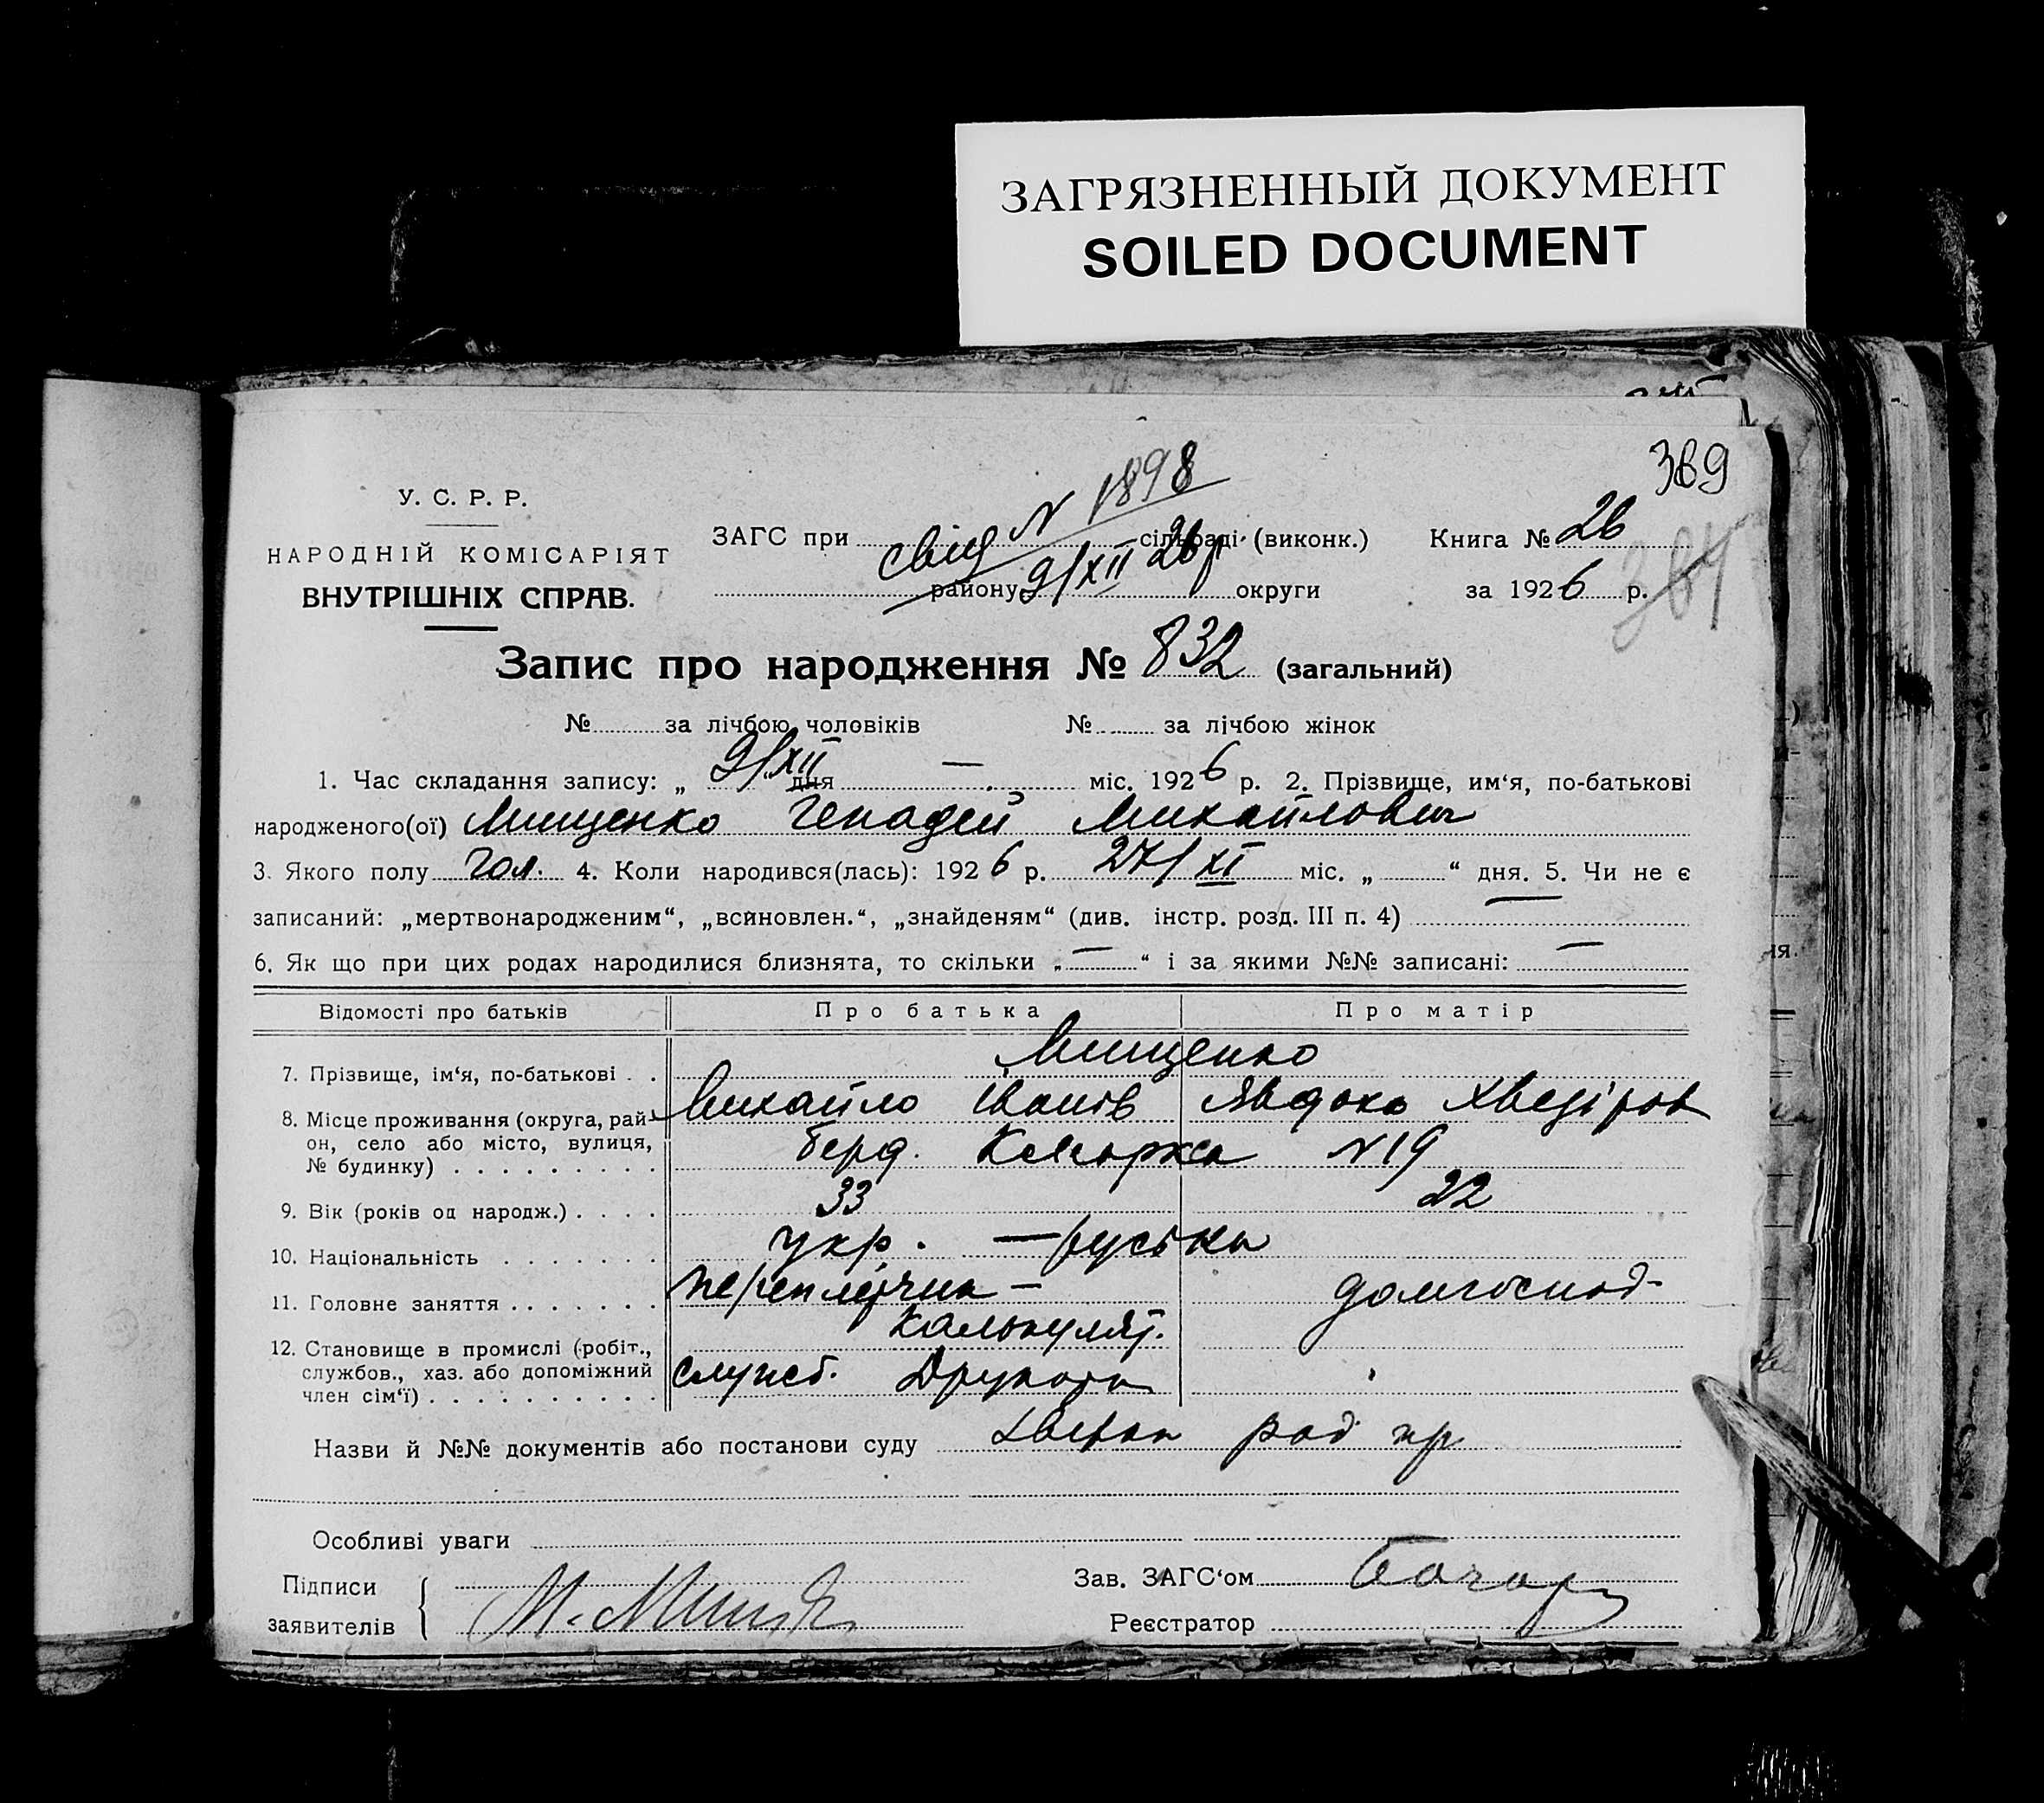 ЗАГРЯЗНЕННЫЙ ДОКУМЕНТ
SOILED DOCUMENT
389
364
У. С. Р. Р.
НАРОДНІЙ КОМІСАРІЯТ
ВНУТРІШНІХ СПРАВ.
свид N 1898
9/XII 26 р
ЗАГС при сільраді (виконк.) Книга № 26
району округи за 1926 р.
Запис про народження № 832 (загальний)
№ за лічбою чоловіків № за лічбою жінок
1. Час складання запису: „ 9/XII дня — міс. 1926 р. 2. Прізвище, им‘я, по-батькові
народженого(ої) Мищенко Генадей Михайлович
3. Якого полу чол. 4. Коли народився(лась): 1926 р. 27/XI міс. „ “ дня. 5. Чи не є
записаний: „мертвонародженим“, „всиновлен.“, „знайденям“ (див. інстр. розд. III п. 4) —
6. Як що при цих родах народилися близнята, то скільки „—“ і за якими №№ записані: —
Відомості про батьків Про батька Про матір
Мищенко
7. Прізвище, ім‘я, по-батькові
Михайло Іванів Явдоха Хведіров
8. Місце проживання (округа, рай-
он, село або місто, вулиця,
№ будинку)
берд. N 19
9. Вік (років од народж.) 33 22
10. Національність укр. — руська
11. Головне заняття переплетчик — домгоспод-
калькулят.
12. Становище в промислі (робіт.,
службов., хаз. або допоміжний
член сім‘ї)
служб. Друкарн
Назви й №№ документів або постанови суду
Особливі уваги
Підписи
заявителів
Зав. ЗАГС‘ом
Реєстратор